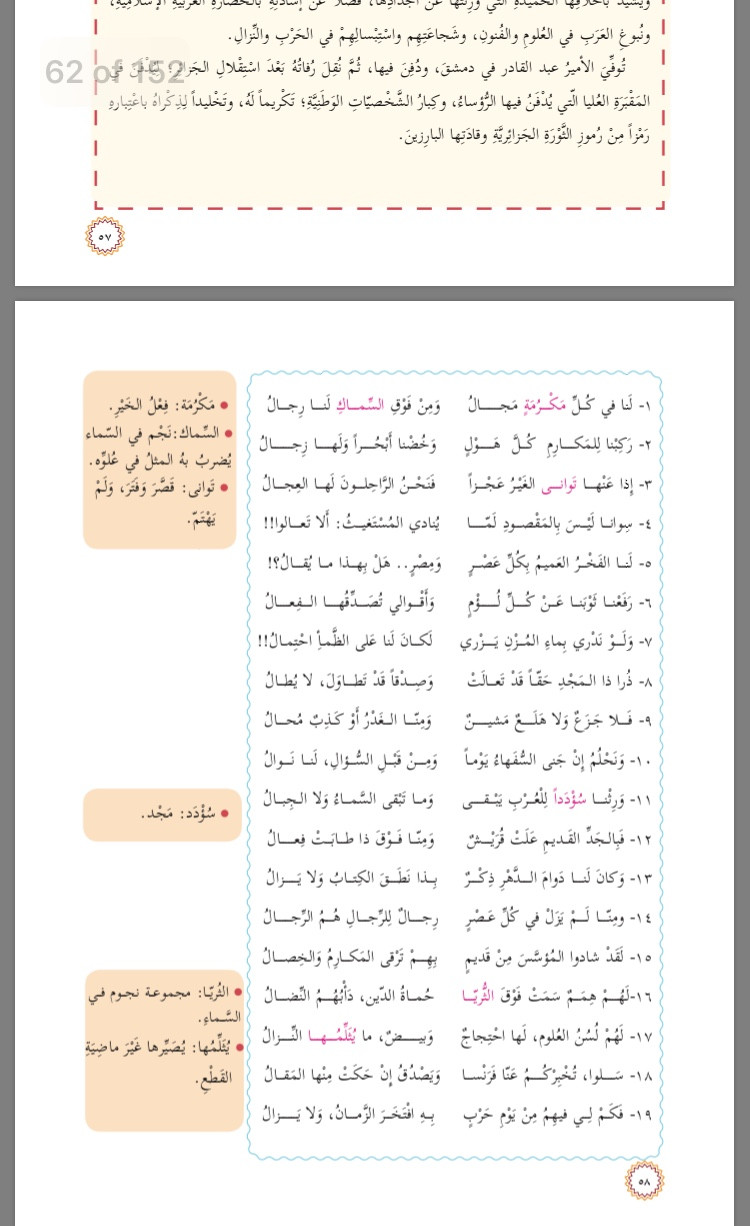 ويُشيدُ بأخلاقِها الحَميدةِ التي وَرِثَتْها عَنْ أجْدادِها، فَضْلاً عَنْ إشادَتِهِ بالحضارةِ العَرَبيّةِ الإسْلاميّةِ،
ونُبوغِ العَرَبِ في العُلومِ والفُنونِ، وشَجاعَتِهِم واسْتِبْسالِهِمْ في الحَرْبِ والنِّزالِ.
62 of 152
تُوفِّيَ الأميرُ عبد القادر في دمشقَ، ودُفِنَ فيها، ثُمَّ نُقِلَ رُفاتُهُ بَعْدَ اسْتِقْلالِ الجَزائرِ؛ لِيُدْفَنَ في
المَقْبَرَةِ العُليا الّتي يُدْفَنُ فيها الرُّؤساءُ، وكِبارُ الشَّخْصيّاتِ الوَطَنِيَّةِ؛ تَكْريماً لَهُ، وتَخْليداً لِذِكْراهُ باعْتِبارِهِ
رَمْزاً مِنْ رُموزِ الثَّوْرَةِ الجَزائرِيَّةِ وقادَتِها البارِزينَ.
٥٧
١- لَنا في كُلِّ مَكْرُمَةٍ مَجالُ وَمِنْ فَوْقِ السِّماكِ لَنا رِجالُ
٢- رَكِبْنا لِلمَكارِمِ كُلَّ هَوْلٍ وَخُضْنا أَبْحُراً وَلَها زِجالُ
٣- إِذا عَنْها تَوانى الغَيْرُ عَجْزاً فَنَحْنُ الرَّاحِلونَ لَها العِجالُ
٤- سِوانا لَيْسَ بِالمَقْصودِ لَمّا يُنادي المُسْتَغيثُ: أَلا تَعالوا!!
٥- لَنا الفَخْرُ العَميمُ بِكُلِّ عَصْرٍ وَمِصْرٍ.. هَلْ بِهذا ما يُقالُ؟!
٦- رَفَعْنا ثَوْبَنا عَنْ كُلِّ لُؤْمٍ وَأَقْوالي تُصَدِّقُها الفِعالُ
٧- وَلَوْ نَدْري بِماءِ المُزْنِ يَزْري لَكانَ لَنا عَلى الظَّمأِ احْتِمالُ!!
٨- ذُرا ذا المَجْدِ حَقّاً قَدْ تَعالَتْ وَصِدْقاً قَدْ تَطاوَلَ، لا يُطالُ
٩- فَلا جَزَعٌ وَلا هَلَعٌ مَشينٌ وَمِنّا الغَدْرُ أَوْ كَذِبٌ مُحالُ
١٠- وَنَحْلُمُ إِنْ جَنى السُّفَهاءُ يَوْماً وَمِنْ قَبْلِ السُّؤالِ، لَنا نَوالُ
١١- وَرِثْنا سُؤْدَداً لِلْعُرْبِ يَبْقى وَما تَبْقى السَّماءُ وَلا الجِبالُ
١٢- فَبِالجَدِّ القَديمِ عَلَتْ قُرَيْشٌ وَمِنّا فَوْقَ ذا طابَتْ فِعالُ
١٣- وَكانَ لَنا دَوامَ الدَّهْرِ ذِكْرٌ بِذا نَطَقَ الكِتابُ وَلا يَزالُ
١٤- ومِنّا لَمْ يَزَلْ في كُلِّ عَصْرٍ رِجالٌ لِلرِّجالِ هُمُ الرِّجالُ
١٥- لَقَدْ شادوا المُؤَسَّسَ مِنْ قَديمٍ بِهِمْ تَرْقى المَكارِمُ وَالخِصالُ
١٦- لَهُمْ هِمَمٌ سَمَتْ فَوْقَ الثُّرَيّا حُماةُ الدّينِ، دَأْبُهُمُ النِّضالُ
١٧- لَهُمْ لُسُنُ العُلومِ، لَها احْتِجاجٌ وَبيضٌ، ما يُثَلِّمُها النِّزالُ
١٨- سَلوا، تُخْبِرْكُمُ عَنّا فَرَنْسا وَيَصْدُقُ إِنْ حَكَتْ مِنْها المَقالُ
١٩- فَكَمْ لِي فيهِمُ مِنْ يَوْمِ حَرْبٍ بِهِ افْتَخَرَ الزَّمانُ، وَلا يَزالُ
• مَكْرُمَة: فِعْلُ الخَيْرِ.
• السِّماك: نَجْم في السّماء
يُضرَبُ بهُ المثلُ في عُلوّه.
• تَوانى: قَصَّرَ وَفَتَرَ، وَلَمْ
يَهْتَمّ.
• سُؤْدَد: مَجْد.
• الثُريّا: مجموعة نجوم في
السَّماءِ.
• يُثَلِّمُها: يُصَيِّرها غَيْرَ ماضِيَةِ
القَطْعِ.
٥٨